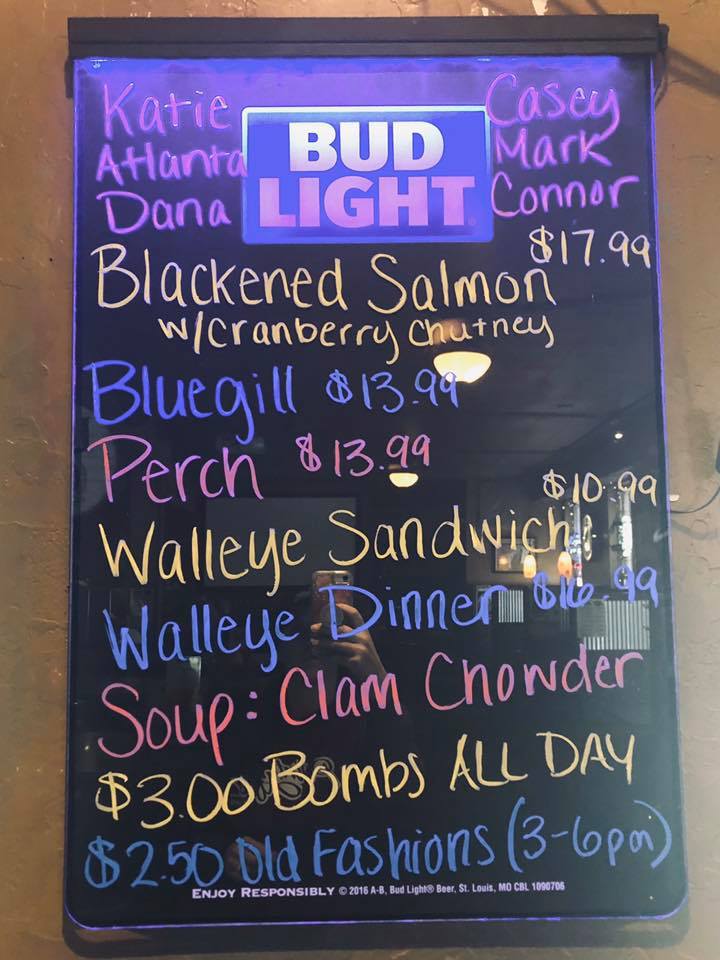 Katie
Atlanta
Dana
BUD
LIGHT
Casey
Mark
Connor
$17.99
Blackened Salmon
w/cranberry chutney
Bluegill $13.99
Perch $13.99
$10.99
Walleye Sandwich
Walleye Dinner $16.99
Soup: Clam Chowder
$3.00 Bombs ALL DAY
$2.50 Old Fashions (3-6pm)
ENJOY RESPONSIBLY © 2016 A-B, Bud Light® Beer, St. Louis, MO CBL 1090706